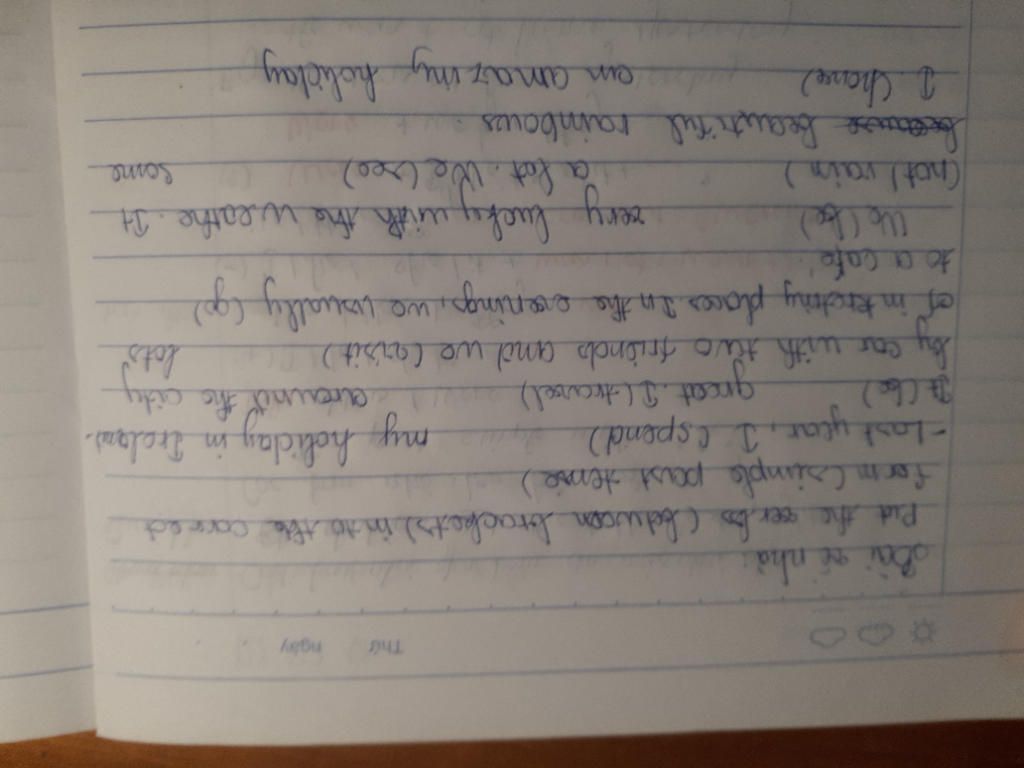 Thứ ngày
Bài về nhà:
Put the verbs (between brackets) into the correct
form (simple past tense)
- Last year, I (spend) my holiday in Ireland.
It (be) great. I (travel) around the city
by car with two friends and we (visit) lots
of interesting places. In the evenings, we usually (go)
to a café.
We (be) very lucky with the weathe. It
(not / rain) a lot. We (see) some
beautiful rainbows.
I (have) an amazing holiday